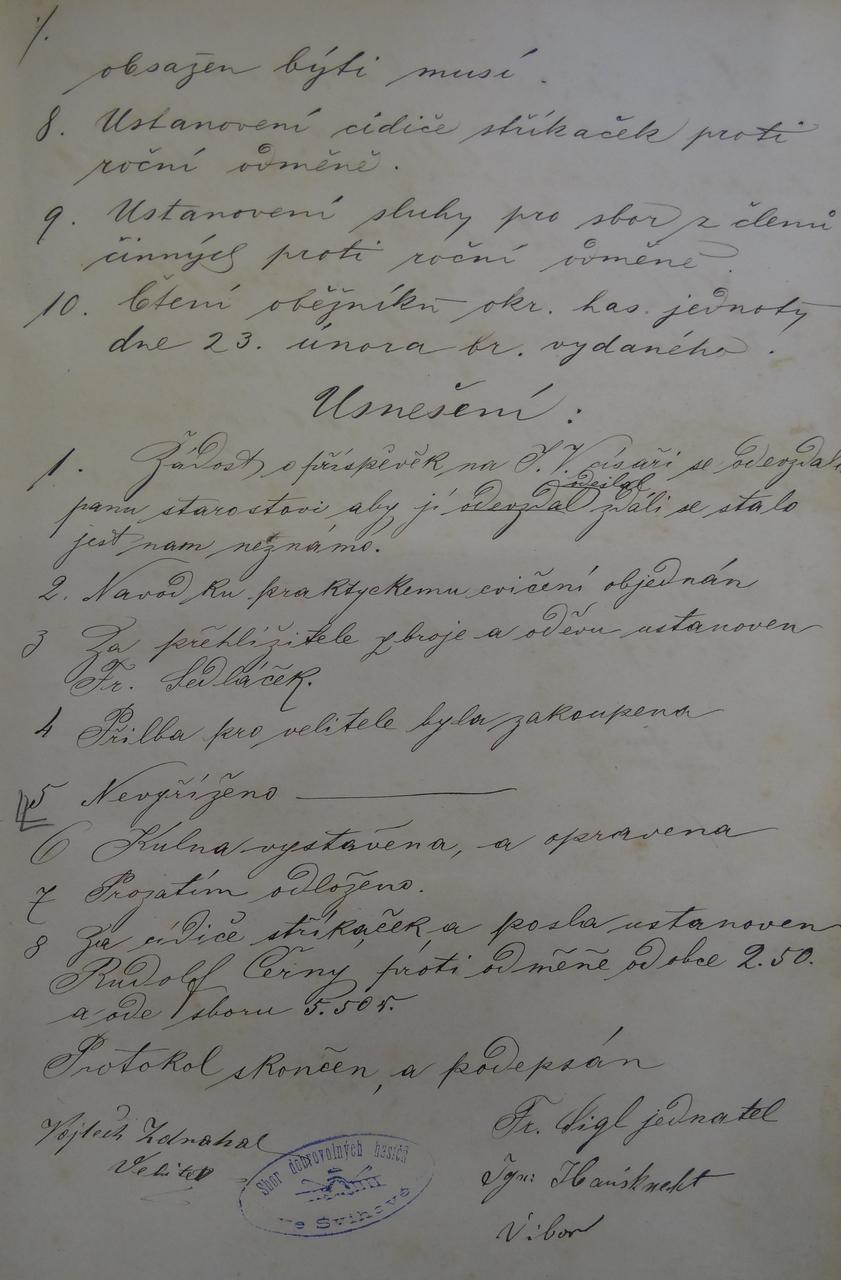 obsažen býti musí.
8. Ustanovení cidiče stříkaček proti
roční odměně.
9. Ustanovení sluhy pro sbor z členů
činných proti roční odměně.
10. Čtení oběžníku okr. has. jednoty
dne 23. února br. vydaného.
Usnešení:
1. Žádost o příspěvěk na J. V. císaři se odevzdala
odeslal
panu starostovi aby ji odevzdal zdáli se stalo
jest nam neznámo.
2. Navod ku praktyckemu cvičení objednán
3 Za přehlížitele zbroje a oděvu ustanoven
Fr. Sedláček.
4 Přilba pro velitele byla zakoupena
5 Nevyřízeno
6 Kulna vystavena, a opravena
7 Prozatím odloženo.
8 Za cídiče stříkaček a posla ustanoven
Rudolf Černy proti odměně od obce 2.50.
a ode sboru 5.50
Protokol skončen, a podepsán
Fr. Sigl jednatel
Vojtech Zdrahal
Velitel
Sbor dobrovolných hasičů
ve Švihově
Ign: Hausknecht
Vibor